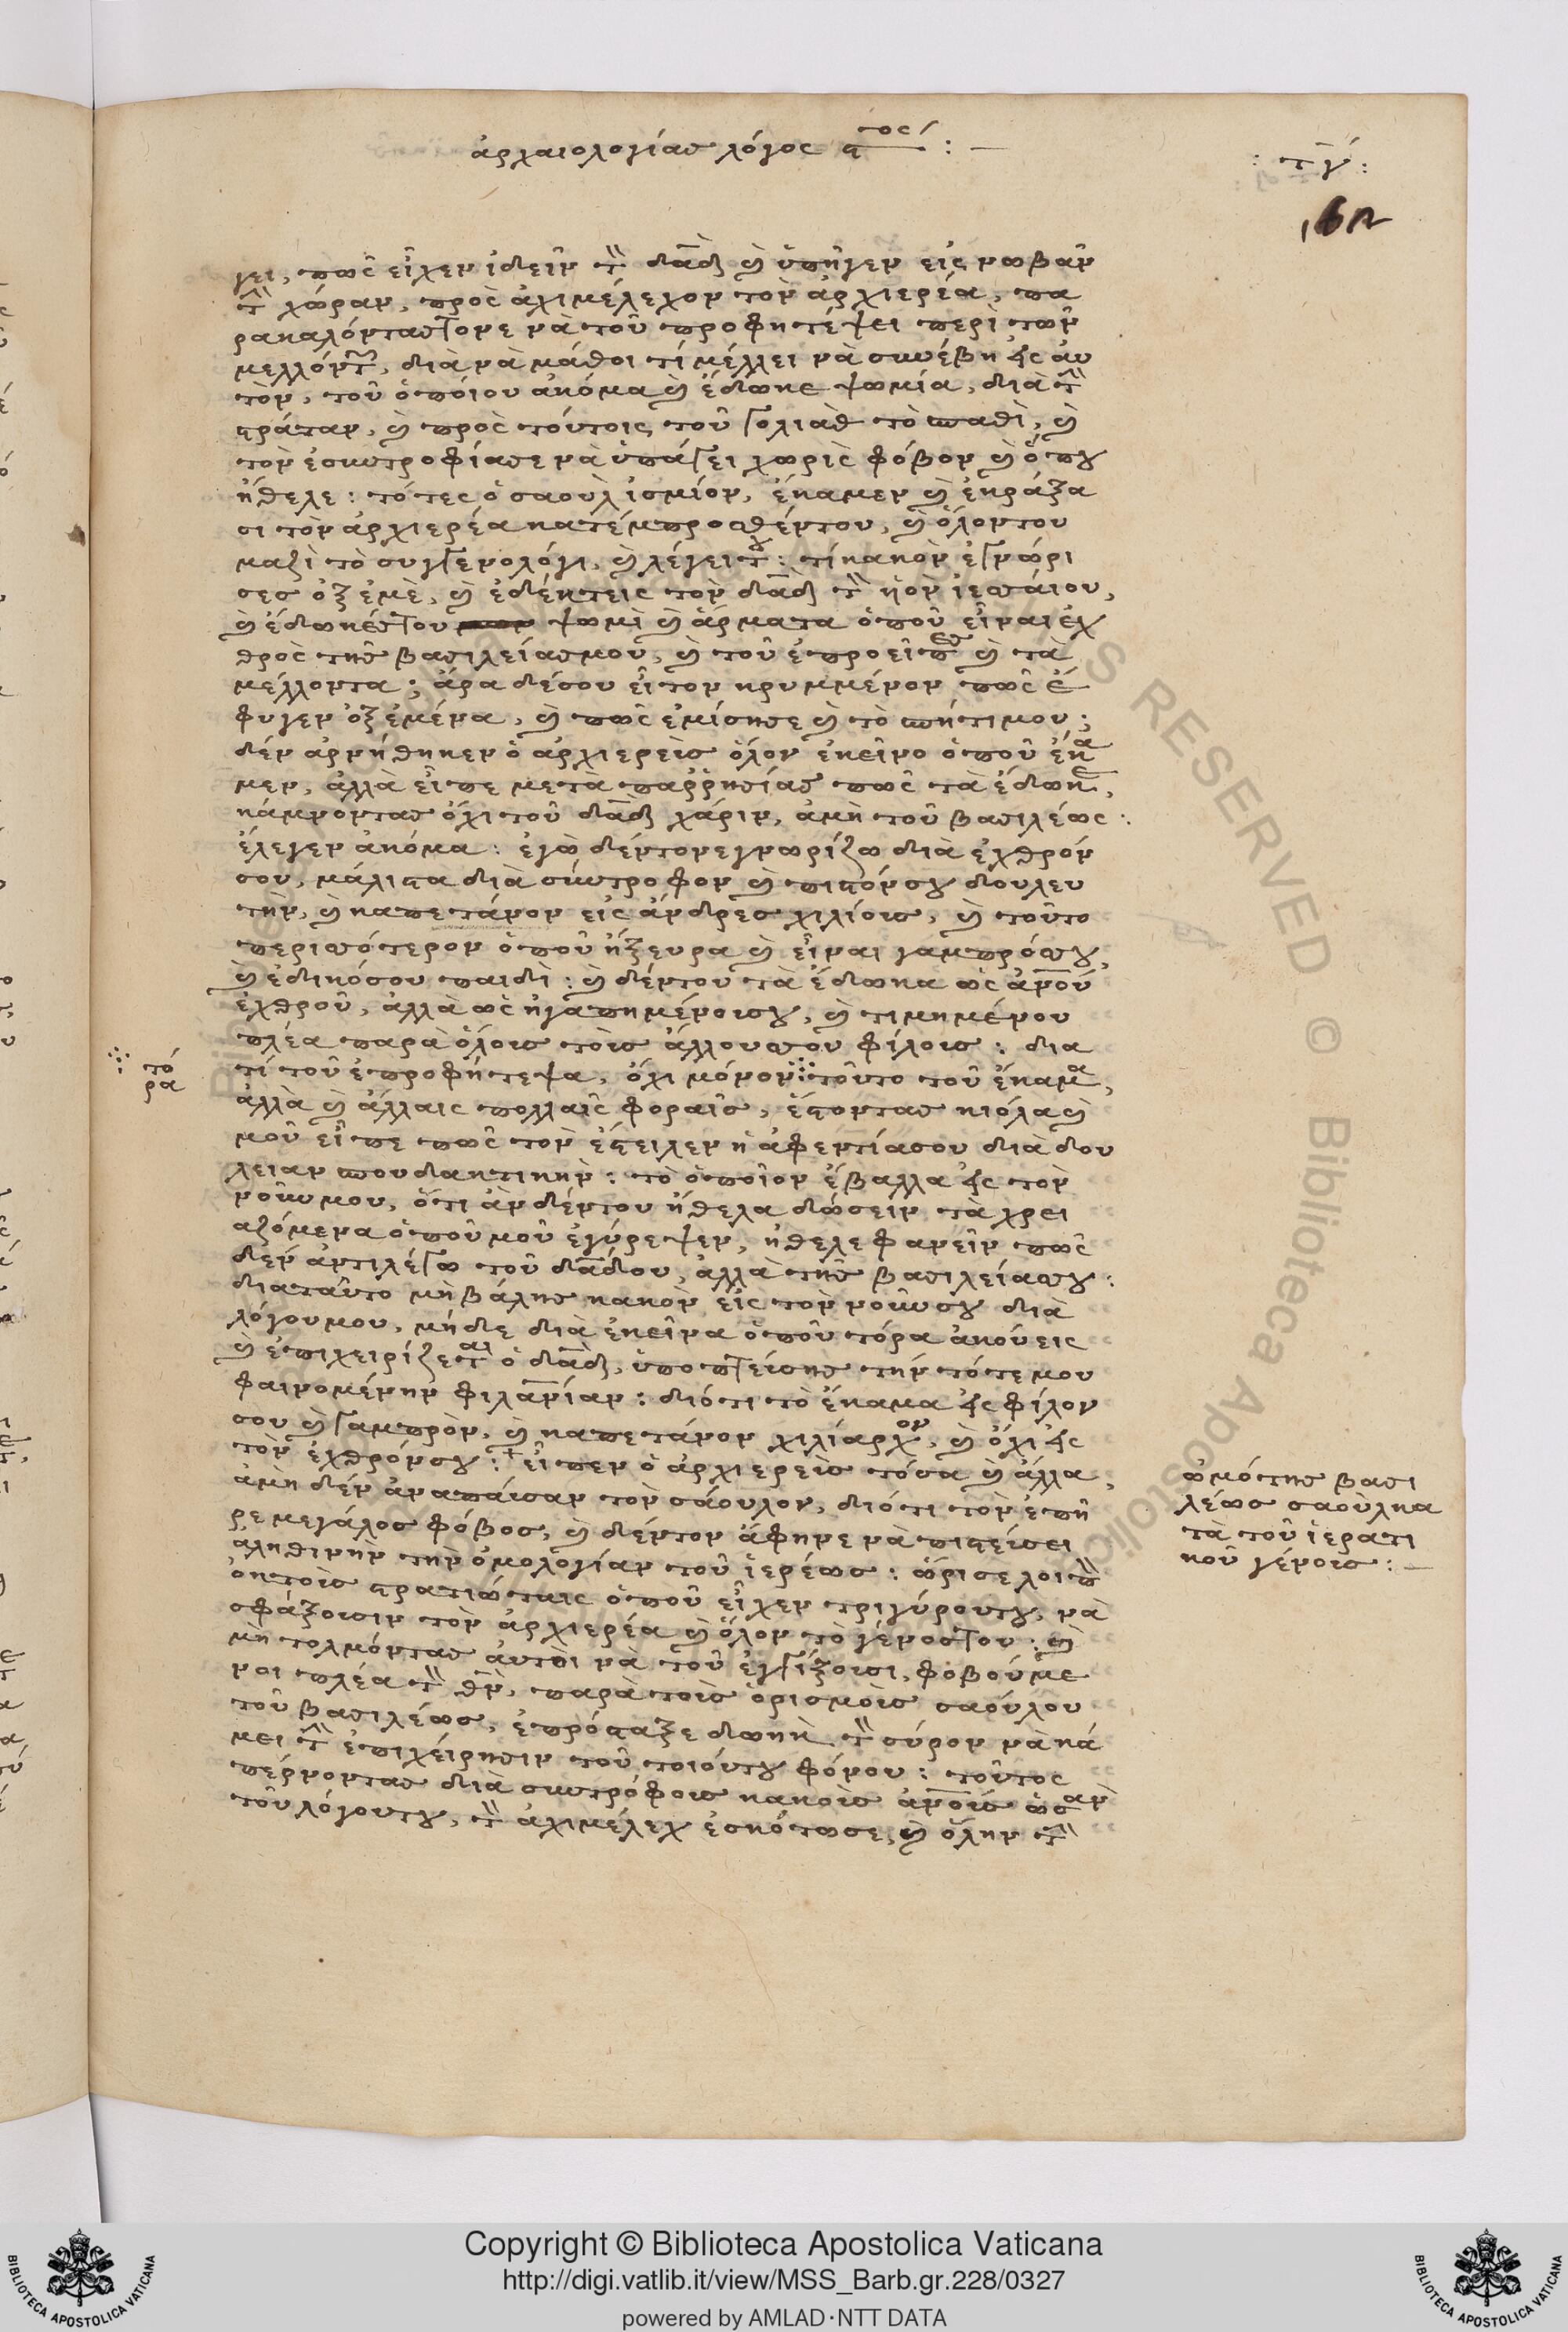 ἀρχαιολογίας λόγος ϛ τος : —
: τγ :
162
γει, πῶς εἶχεν ἰδεῖν τ δαδ ϗ ὑπῆγεν εἰς νωβᾶν
τ χώραν, πρὸς ἀχιμέλεχον τὸν ἀρχιερέα, πα
ρακαλόντας τονε νὰ τοῦ προφητέψει περὶ τῶν
μελλόντ, διὰ νὰ μάθοι τί μέλλει νὰ συνέβη εἰς αὐ
τὸν, τοῦ ὁποίου ἀκόμα ϗ ἔδωκε ψωμία, διὰ τ
στράταν, ϗ πρὸς τούτοις τοῦ γολιὰθ τὸ σπαθὶ, ϗ
τὸν ἐσυντροφίασε νὰ ὑπάγει χωρὶς φόβον ϗ ὅπου
ἤθελε : τότες ὁ σαοὺλ ἰσμίον, ἔκαμεν ϗ ἐκράξα
σι τὸν ἀρχιερέα κατέμπροσθέντου, ϗ ὅλοντου
μαζὶ τὸ συγγενολόγι, ϗ λέγει του : τί κακὸν ἐγνώρι
σες ὀξ ἐμὲ, ϗ ἐδέκτεις τὸν δαδ τ ἡὸν ἰεσσαίου,
ϗ ἔδωκές του ψωμὶ ϗ ἄρματα ὁποῦ εἶναι ἐχ
θρὸς τῆς βασιλείας μου, ϗ τοῦ ἐπροεῖπες ϗ τὰ
μέλλοντα ; ἄρα δέσου εἶτον κρυμμένον πῶς ἔ
φυγεν ὀξ ἐμένα, ϗ πῶς ἐμίσησε ϗ τὸ σπήτι μου ;
δὲν ἀρνήθηκεν ὁ ἀρχιερεὶς ὅλον ἐκεῖνο ὁποῦ ἔκα
μεν, ἀλλὰ εἶπε μετὰ παῤῥησίας πῶς τὰ ἔδωκε,
κάμνοντας ὄχι τοῦ δαδ χάριν, ἀμὴ τοῦ βασιλέως :
ἔλεγεν ἀκόμα : ἐγὼ δέντονε γνωρίζω διὰ ἐχθρόν
σου, μάλιστα διὰ σύντροφον ϗ πιστόν σου δουλευ
τὴν, ϗ καπετάνον εἰς ἄνδρες χιλίοις, ϗ τοῦτο
περισσότερον ὁποῦ ἤξευρα ϗ εἶναι γαμπρός σου,
ϗ ἐδικόσου παιδὶ : ϗ δέντου τὰ ἔδωκα ὡς ἀνοῦ
ἐχθροῦ, ἀλλὰ ὡς ἠγαπημένοι σου, ϗ τιμημένου
πλέα παρὰ ὅλοις τοὶς ἄλλους σου φίλοις : δια
τί τοῦ ἐπροφήτεψα, ὄχι μόνον τοῦτο τοῦ ἔκαμα,
ἀλλὰ ϗ ἄλλαις πολλαῖς φοραῖς, ἔστοντας κιόλα ϗ
μοῦ εἶπε πῶς τὸν ἔστειλεν ἡ ἀφεντία σου διὰ δου
λειαν σπουδακτικὴν : τὸ ὁποῖον ἔβαλλα εἰς τὸν
νοῦν μου, ὅτι ἂν δέντου ἤθελα δώσειν τὰ χρει
αζόμενα ὁποῦ μοῦ ἐγύρεψεν, ἤθελε φανεῖν πῶς
δὲν ἀντιλέγω τοῦ δαδου, ἀλλὰ τῆς βασιλείας σου :
διαταῦτο μὴ βάλης κακὸν εἰς τὸν νοῦν σου διὰ
λόγου μου, μήδε διὰ ἐκεῖνα ὁποῦ τόρα ἀκούεις
ϗ ἐπιχειρίζεται ὁ δαδ, ὑποπτείσης τὴν τότε μου
φαινομένην φιλανίαν : διότι τὸ ἔκαμα εἰς φίλον
σου ϗ γαμπρὸν, ϗ καπετάνον χιλίαρχον, ϗ ὄχι εἰς
τὸν ἐχθρόν σου : + εἶπεν ὁ ἀρχιερεὶς τόσα ϗ ἄλλα,
ἀμὴ δὲν ἀναπάισαν τὸν σάουλον, διότι τὸν ἐπῆ
ρε μεγάλος φόβος, ϗ δέντον ἄφηνε νὰ πιστείσει
ἀληθινὴν τὴν ὁμολογίαν τοῦ ἱερέως : ὥρισε λοιπ
ὀκτοὶς στρατιώταις ὁποῦ εἶχεν τριγύρουτου, νὰ
σφάξοισιν τὸν ἀρχιερέα ϗ ὅλον τὸ γένος του : ϗ
μὴ τολμόντας αὐτοὶ νὰ τοῦ ἐγγίξοισι, φοβούμε
νοι πλέα τ θν, παρὰ τοὶς ὁρισμοὶς σαούλου
τοῦ βασιλέως, ἐπρόσταξε δωὴκ τ σύρον νὰ κά
μει τ ἐπιχείρησιν τοῦ τοιούτου φόνου : τοῦτος
πέρνοντας διὰ συντρόφοις κακοὶς ἀνοὶς ὡσὰν
τοῦ λόγουτου, τ ἀχιμέλεχ ἐσκότωσε, ϗ ὅλην τ
τό
ρα
ὠμότης βασι
λέως σαοὺλ κα
τὰ τοῦ ἱερατι
κοῦ γένοις : —
Copyright © Biblioteca Apostolica Vaticana
http://digi.vatlib.it/view/MSS_Barb.gr.228/0327
powered by AMLAD·NTT DATA